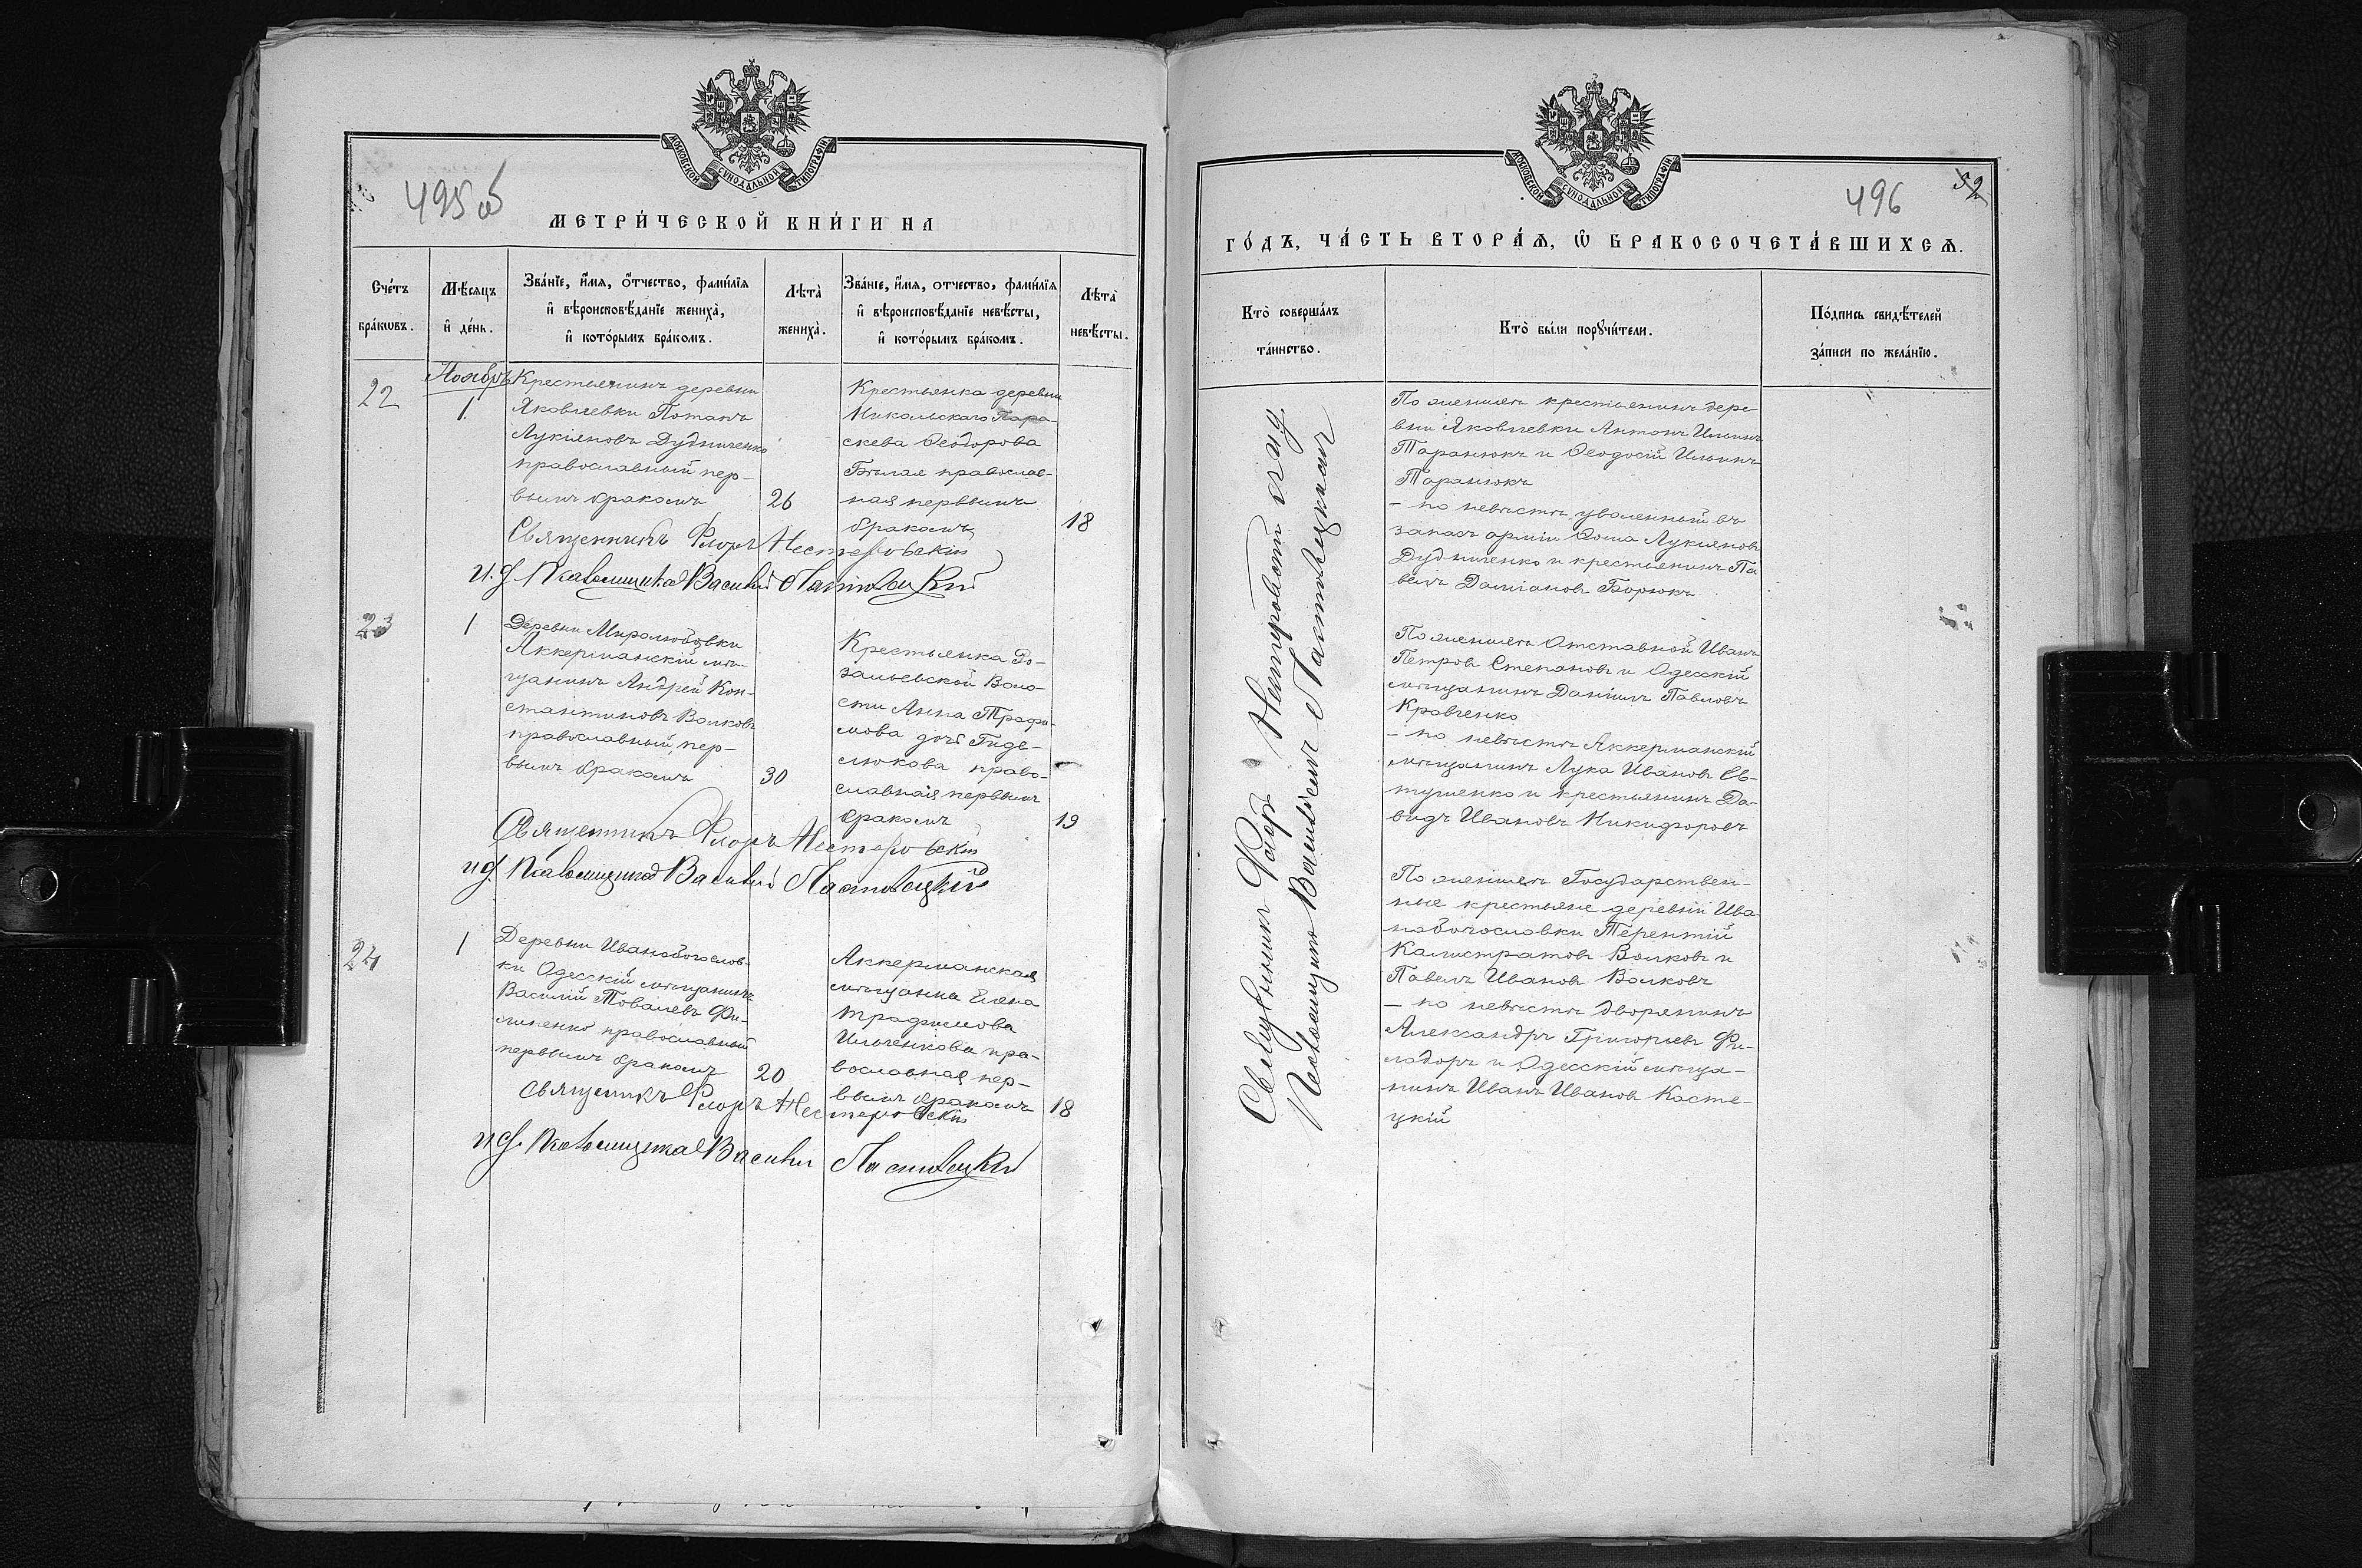 МОСКОВСКОЙ СУНОДАЛЬНОЙ ТИПОГРАФІИ
495 об
МЕТРИ́ЧЕСКОЙ КНИ́ГИ НА
Сче́тъ бра́кѡвъ.
Мѣ́сяцъ и҆ де́нь.
Зва́нїе, и҆́мя, ѻ҆́тчество, фами́лїя и҆ вѣроисповѣ́данїе жениха̀, и҆ кото́рымъ бра́комъ.
Лѣта̀ жениха̀.
Зва́нїе, и҆́мя, отчество, фами́лїя и҆ вѣроисповѣ́данїе невѣ́сты, и҆ кото́рымъ бра́комъ.
Лѣта̀ невѣ́сты.
22
Ноябрь
1.
Крестьянинъ деревни
Яковлевки Потапъ
Лукіяновъ Дудниченко
православный пер-
вымъ бракомъ
26
Крестьянка деревни
Никольскаго Пара-
скева Ѳеодорова
Бѣлая православ-
ная первымъ
бракомъ
18
Священникъ Флоръ Нестеровскій
И. д. Псаломщика Василій Ластовецкій
23
1
Деревни Миролюбовки
Аккерманскій мѣ-
щанинъ Андрей Кон-
стантиновъ Волковъ
православный, пер-
вымъ бракомъ
30
Крестьянка Ро-
зальевской Воло-
сти Анна Трофи-
мова дочь Гиде-
люкова право-
славная первымъ
бракомъ
19
Священникъ Флоръ Нестеровскій
и д. Псаломщика Василій Ластовецкій
24
1
Деревни Иванобогослов-
ки Одесскій мѣщанинъ
Василій Товалевъ Фи-
липенко православный
первымъ бракомъ
20
Аккерманская
мѣщанка Елена
Трафимова
Ильченкова пра-
вославная пер-
вымъ бракомъ
18
Священникъ Флоръ Нестеровскій
и д. Псаломщика Василій Ластовецкій
МОСКОВСКОЙ СУНОДАЛЬНОЙ ТИПОГРАФІИ
496
52
ГО́ДЪ, ЧА́СТЬ ВТОРА́Ѧ, Ѡ҆ БРАКОСОЧЕТА́ВШИХСѦ.
Кто̀ соверша́лъ та́инство.
Кто̀ были порꙋчи́тели.
По́дпись свидѣ́телей за́писи по жела́нїю.
Священникъ Флоръ Нестеровскій съ и д.
Псаломщика Василіемъ Ластовецкимъ
По женихѣ крестьянинъ дере-
вни Яковлевки Антонъ Ильинъ
Таранюкъ и Ѳеодосій Ильинъ
Таранюкъ
- по невѣстѣ уволенный въ
запасъ арміи Ѳома Лукіяновъ
Дудниченко и крестьянинъ Па
велъ Даміановъ Борюкъ
По женихѣ Отставной Иванъ
Петровъ Степановъ и Одесскій
мѣщанинъ Даніилъ Павловъ
Кравченко
- по невѣстѣ Аккерманскій
мѣщанинъ Лука Ивановъ Ев-
тушенко и крестьянинъ Да-
видъ Ивановъ Никифоровъ
По женихѣ Государствен-
ные крестьяне деревни Ива-
нобогословки Терентій
Калистратовъ Волковъ и
Павелъ Ивановъ Волковъ
- по невѣстѣ дворянинъ
Александръ Григорьевъ Фи-
ладоръ и Одесскій мѣща-
нинъ Иванъ Ивановъ Косте-
цкій